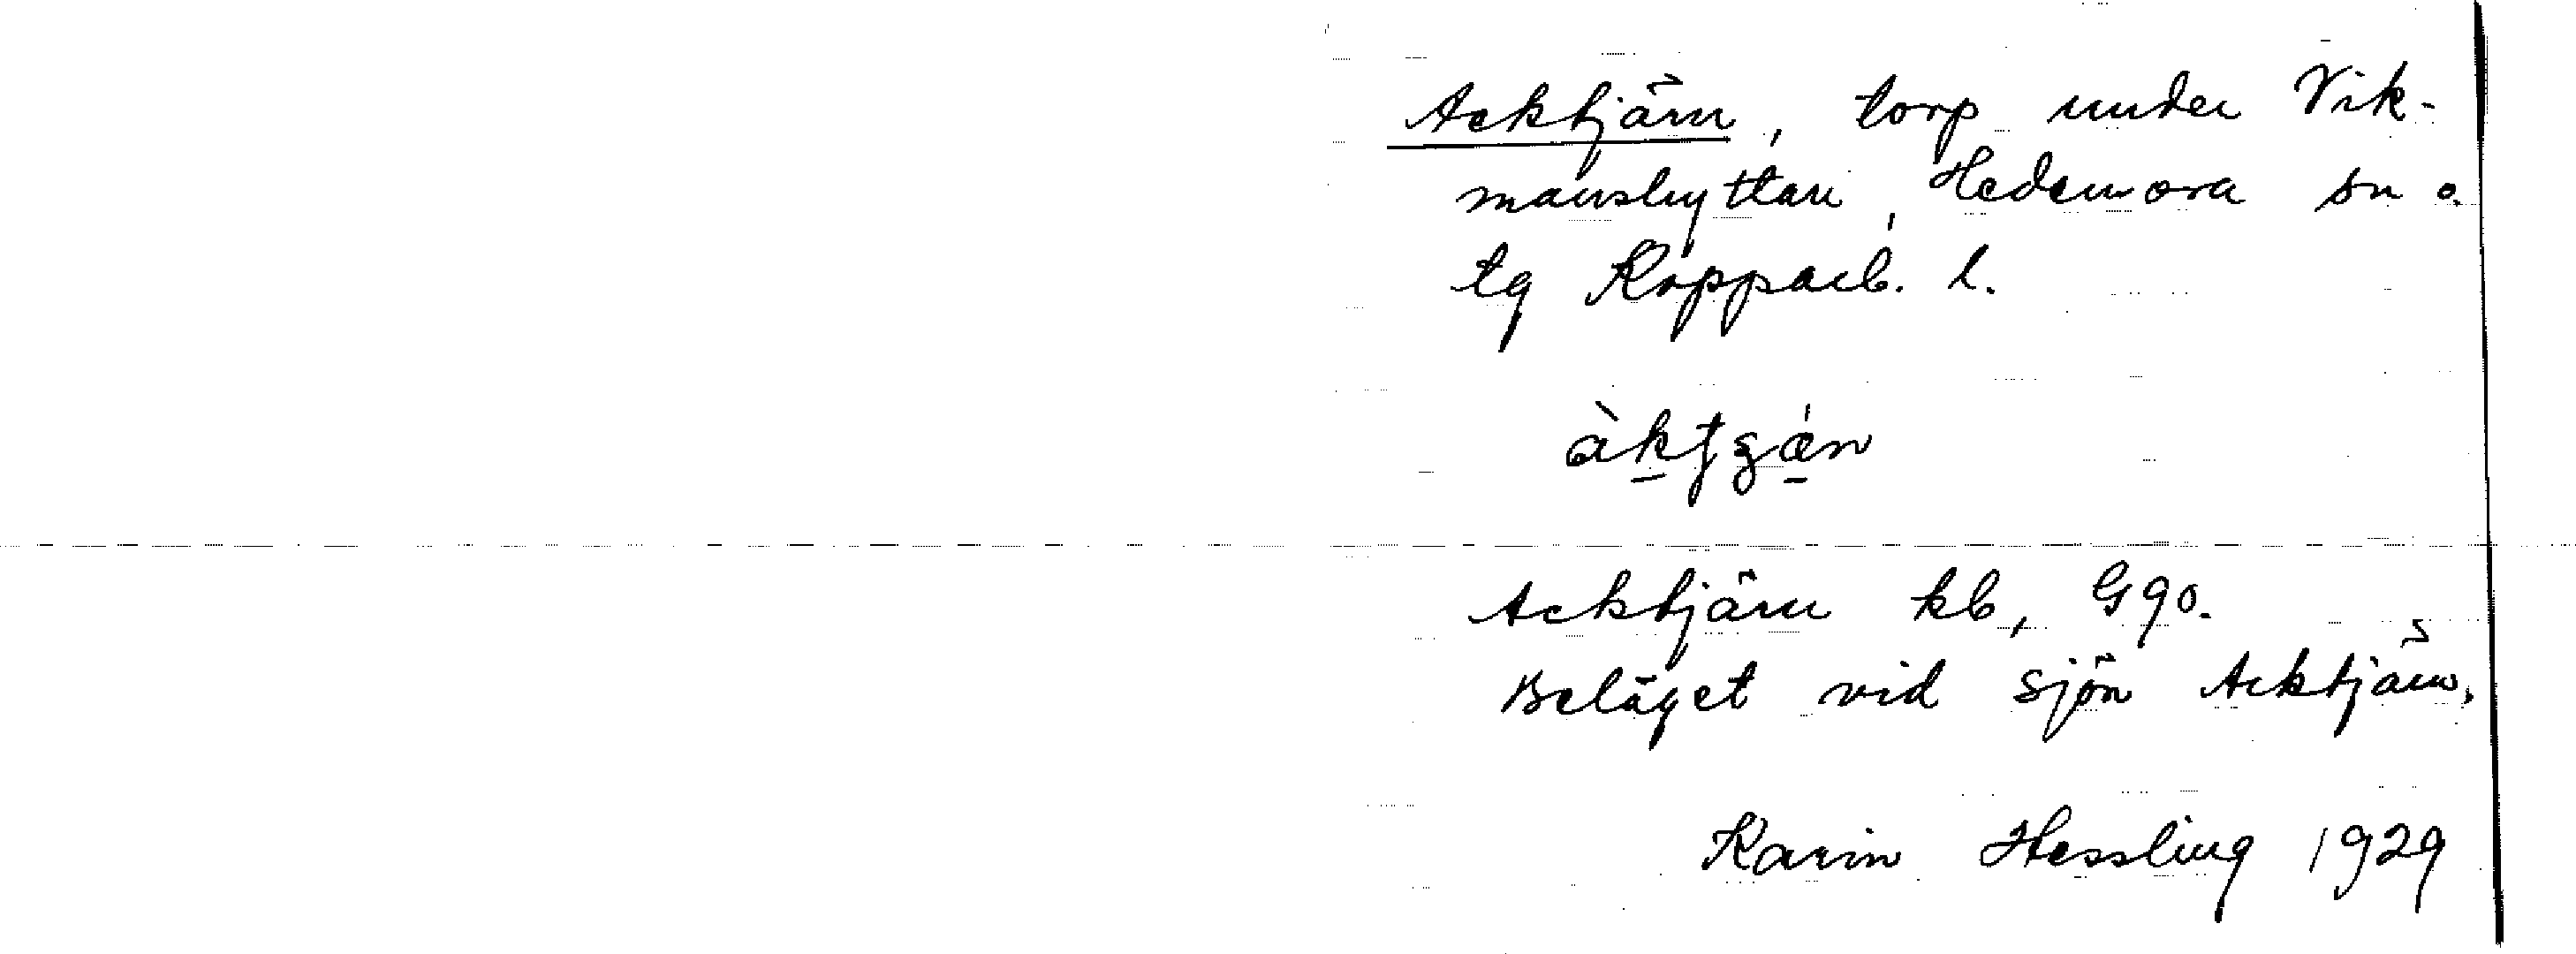 Acktjärn, torp under Vik-
manshyttan, Hedemora sn o.
tg Kopparb. l.
àktʒǽn
Acktjärn kb, G90.
Beläget vid sjön Acktjärn.
Karin Hessling 1929